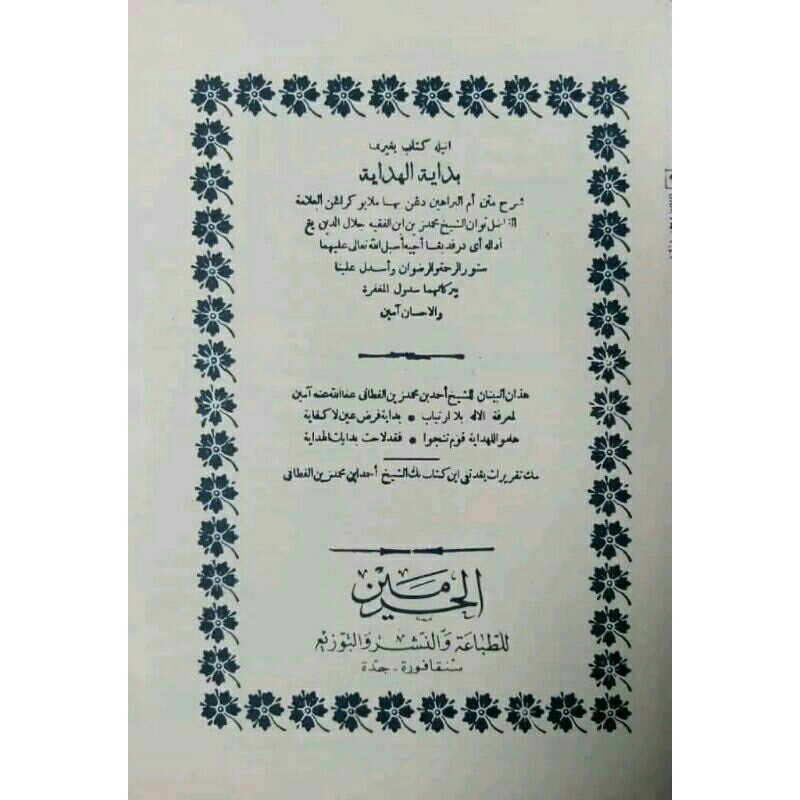 اينله كتاب يڠبرنما
بداية الهداية
شرح متن أم البراهين دڠن بهاس ملايو كراڠن العلامة
الفاضل توان الشيخ محمد زين ابن الفقيه جلال الدين يڠ
اداله أي درفد بڠسا أچيه أسبل الله تعالى عليهما
ستور الرحمة والرضوان وأسدل علينا
ببركاتهما سدول المغفرة
والاحسان آمين
هذان البيتان للشيخ أحمد بن محمد زين الفطاني عفا الله عنه آمين
لمعرفة الاله بلا ارتياب • بداية فرض عين لا كفاية
هلموا للهداية قوم تنجوا • فقد لاحت بدايات الهداية
مك تقريرات يڠدتڤي اين كتاب بڬ الشيخ أحمد ابن محمد زين الفطاني
الحرمين
للطباعة والنشر والتوزيع
سنقافورة - جدة